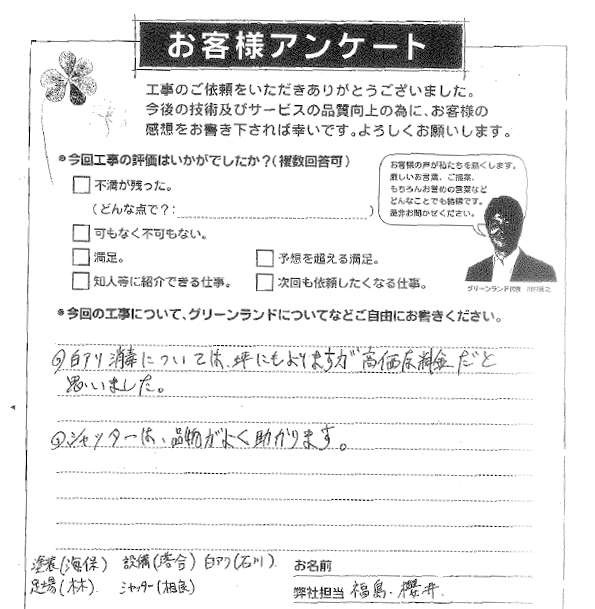 お客様アンケート
工事のご依頼をいただきありがとうございました。
今後の技術及びサービスの品質向上の為に、お客様の
感想をお書き下されば幸いです。よろしくお願いします。
※今回工事の評価はいかがでしたか?(複数回答可)
不満が残った。
(どんな点で?: )
可もなく不可もない。
満足。
予想を超える満足。
知人等に紹介できる仕事。
次回も依頼したくなる仕事。
お客様の声が私たちを熱くします。
厳しいお言葉、ご提案、
もちろんお誉めの言葉など
どんなことでも結構です。
是非お聞かせください。
グリーンランド代表
※今回の工事について、グリーンランドについてなどご自由にお書きください。
白アリ消毒については、坪にもよりますが高価な料金だと
思いました。
シャッターは、品物がよく助かります。
塗装(海保) 設備(落合) 白アリ(石川)
足場(林) シャッター(相良)
お名前
弊社担当 福島・櫻井